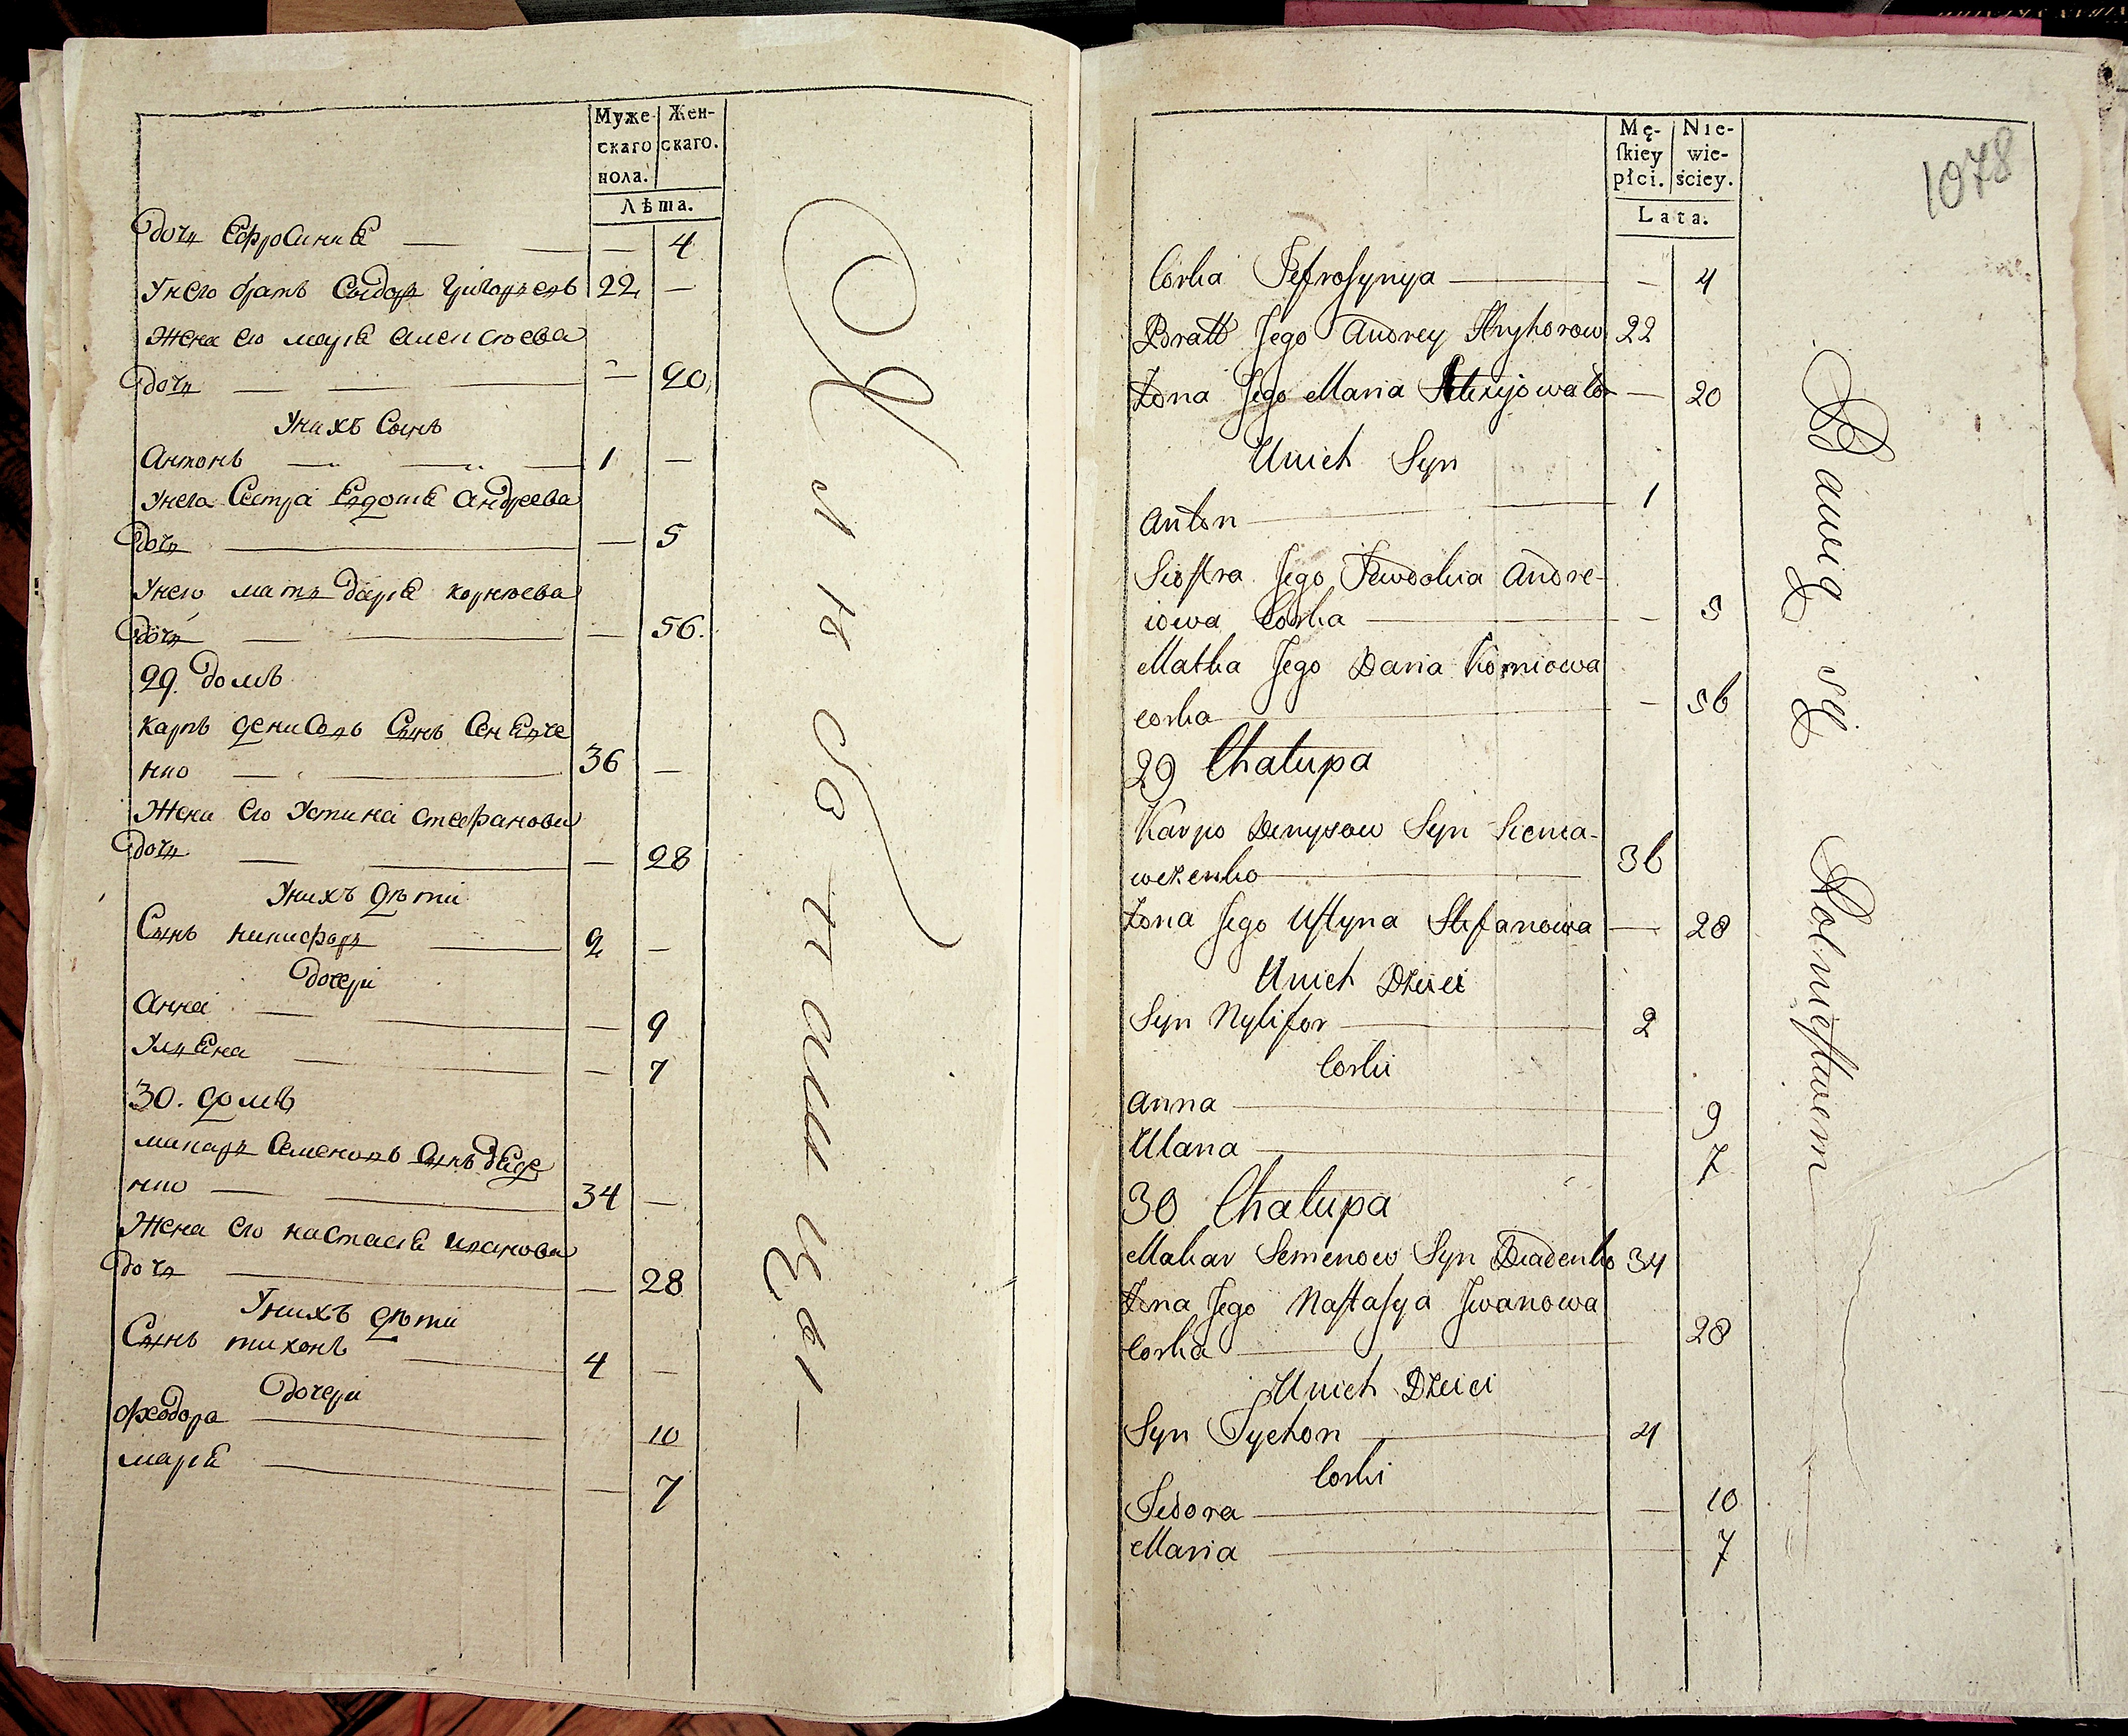 Муже- Жен-
скаго скаго.
пола.
Лѣта.
Дочь Ефросинѣя — 4
У него братъ Сидоръ Григорьевъ 22 —
Жена его марья алексѣева
Дочь — 20
У нихъ Сынъ
Антонъ — 1 —
У него Сестра Евдокия андреева
Дочь — 5
У него мать дарья корнѣева
Дочь — 56.
29. домъ
карпъ денисовъ Сынъ
нко — 36 —
Жена его Устина стефанова
Дочь — 28
У нихъ дѣти
Сынъ никифоръ — 2 —
Дочери
Анна — 9
Ульяна — 7
30. домъ
макаръ Семеновъ Сынъ дяде
нко — 34 —
Жена его настасья иванова
Дочь — 28
У нихъ дѣти
Сынъ тихонъ — 4 —
Дочери
феодора — 10
марья — 7
хлебопашцы —
1078
Mę- Nie-
ſkiey wie-
płci. ściey.
Lata.
Corka Jefroſynya — 4
Bratt Jego Andrey Hryhorow 22
Żona Jego Maria — 20
U nich Syn
Anton — 1
Sioſtra Jego Jewdokia Andre-
iowa Corka — 5
Matka Jego Daria Korniowa
corka — 56
29 Chałupa
Karpo Denysow Syn Siema-
wczenko — 36
Żona Jego Uſtyna Stefanowa — 28
U nich Dzieci
Syn Nykifor — 2
Corki
Anna — 9
Ulana — 7
30 Chałupa
Makar Semenow Syn Diadenko 34
Żona Jego Naſtaſya Jwanowa
Corka — 28
U nich Dzieci
Syn Tychon — 4
Corki
Fedora — 10
Maria — 7
Bawią się Rolnieſtwem